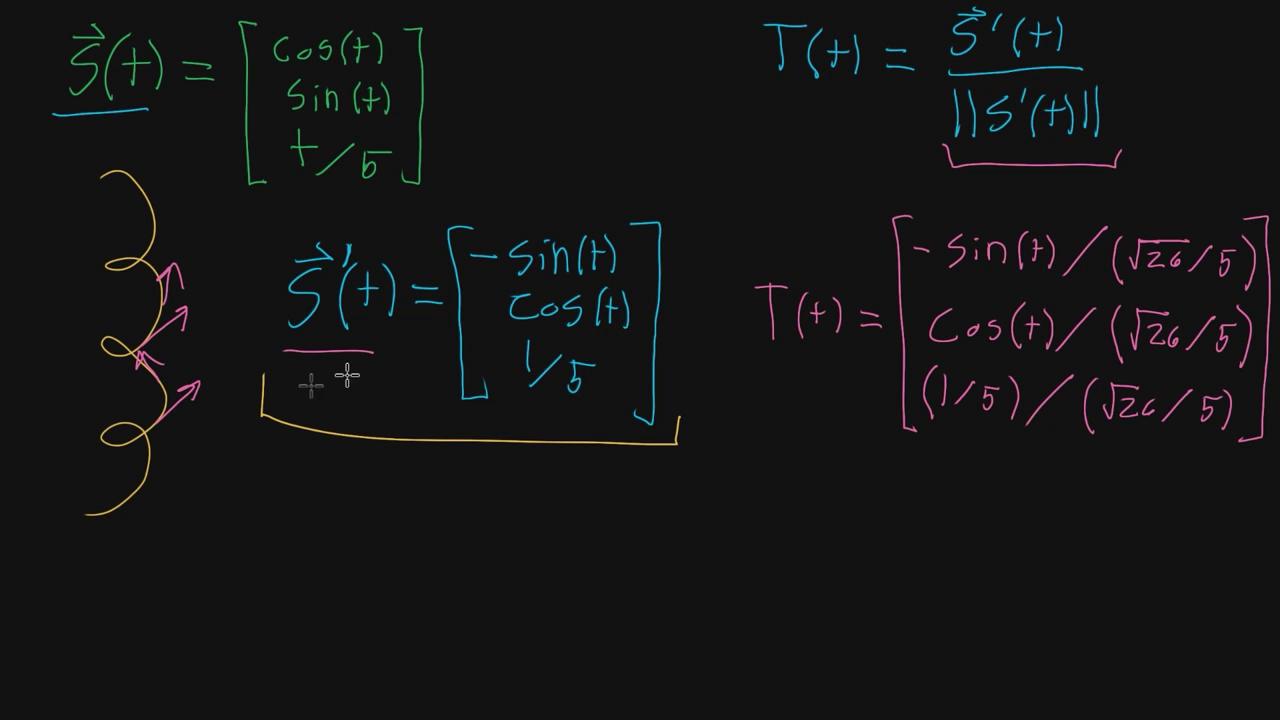 S⃗(t) = [ cos(t)
sin(t)
t/5 ]
T(t) = S⃗'(t)
||S'(t)||
S⃗'(t) = [ -sin(t)
cos(t)
1/5 ]
T(t) = [ -sin(t)/(√26/5)
cos(t)/(√26/5)
(1/5)/(√26/5) ]